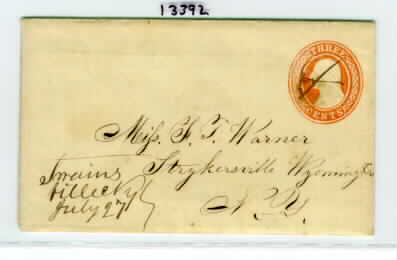 13392
THREE
CENTS
Miss. F. T. Warner
Strykersville Wyoming Co
N.Y.
Swains
July 27